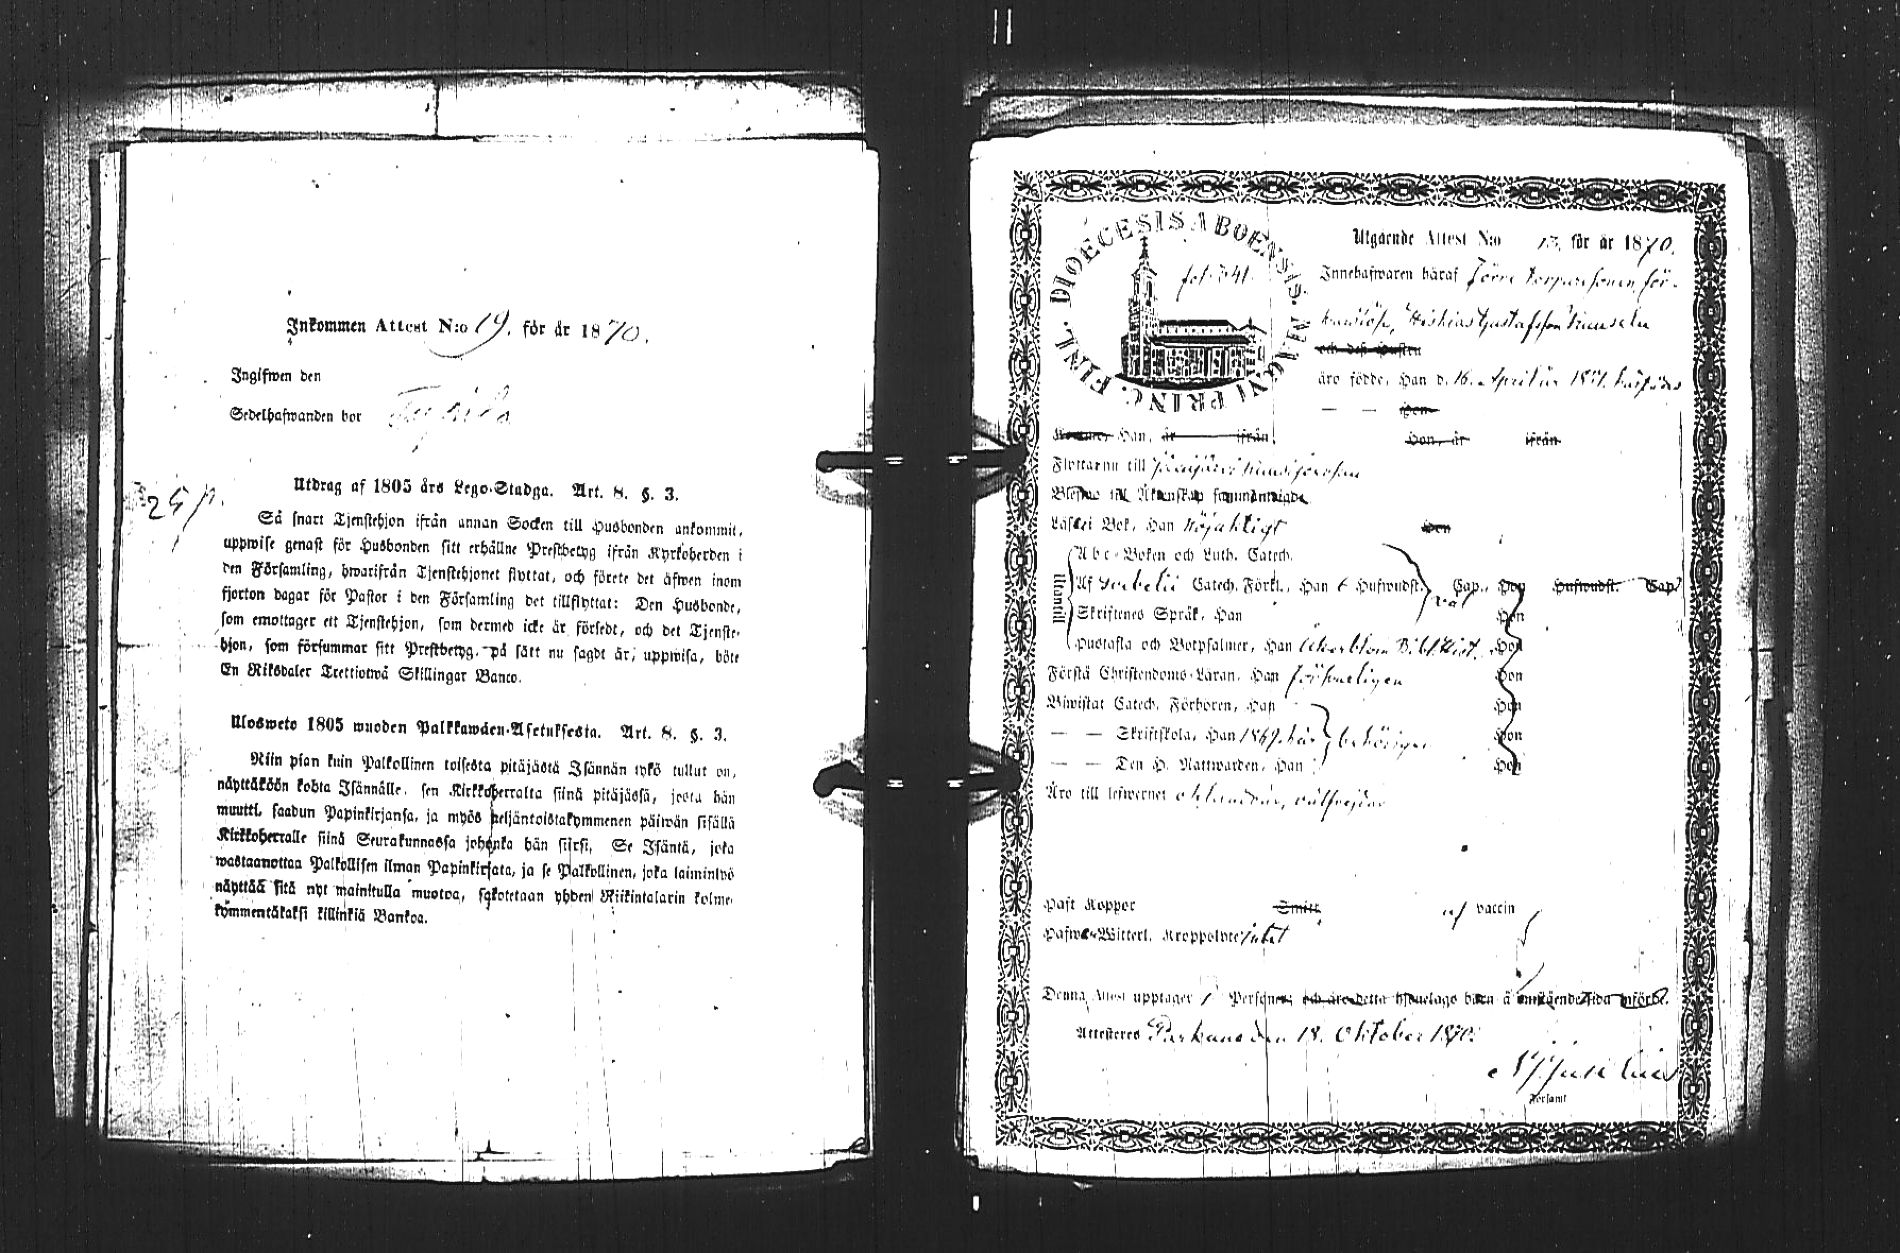 Inkommen Attest N:o 19. för år 1870.
Ingifwen den
Sedelhafwanden bor
25 p.
Utdrag af 1805 års Lego-Stadga. Art. 8. §. 3.
Så snart Tjenstehjon ifrån annan Socken till Husbonden ankommit,
uppwise genast för Husbonden sitt erhållne Prestbetyg ifrån Kyrkoherden i
den Församling, hwarifrån Tjenstehjonet flyttat, och förete det äfwen inom
fjorton dagar för Pastor i den Församling det tillflyttat: Den Husbonde,
som emottager ett Tjenstehjon, som dermed icke är försedt, och det Tjenste-
hjon, som försummar sitt Prestbetyg, på sätt nu sagdt är, uppwisa, böte
En Riksdaler Trettiotwå Skillingar Banco.
Ulosweto 1805 wuoden Palkkawäen-Asetuksesta. Art. 8. §. 3.
Niin pian kuin Palkollinen toisesta pitäjästä Isännän tykö tullut on,
näyttäköön kohta Isännälle, sen Kirkkoherralta siinä pitäjässä, josta hän
muutti, saadun Papinkirjansa, ja myös neljäntoistakymmenen päiwän sisällä
Kirkkoherralle siinä Seurakunnassa johonka hän siirsi. Se Isäntä, joka
wastaanottaa Palkollisen ilman Papinkirjata, ja se Palkollinen, joka laiminlyö
näyttää sitä nyt mainitulla muotoa, sakotetaan yhden Riikintalarin kolme-
kymmentäkaksi killinkiä Bankoa.
DIOECESIS ABOENSIS. MAGNI PRINC. FINL.
fol. 341.
Utgående Attest N:o 13. för år 1870.
Innehafwaren häraf förre torparesonen för-
Gustafsson
och dess Hustru
äro födde, Han d. 16. April år
— — Hon
Kommer Han, år ifrån Hon, år ifrån
Flyttar nu till
Blefwo till Äktenskap sammanwigde
Läser i Bok, Han nöjaktigt Hon
Utantill
Abc-Boken och Luth. Catech.
Af Catech. Förkl., Han 6 Hufwudst. Cap., Hon Hufwudst. Cap.
väl
Skriftenes Språk, Han Hon
Hustafla och Botpsalmer, Han Hon
Förstå Christendoms-Läran, Han försvarligen Hon
Biwistat Catech. Förhören, Han Hon
— — Skriftskola, Han 1869. här behörigen Hon
— — Den H. Nattwarden, Han Hon
Äro till lefwernet oklandrar, välfrejdar
Haft Koppor Smitt af vaccin
Hafwa Witterl. Kroppslyte intet
Denna Attest upptager 1 Personer, och äro detta hjonelags barn å omstående sida införde.
Attesteres Parkano den 18. Oktober 1870.
Församl